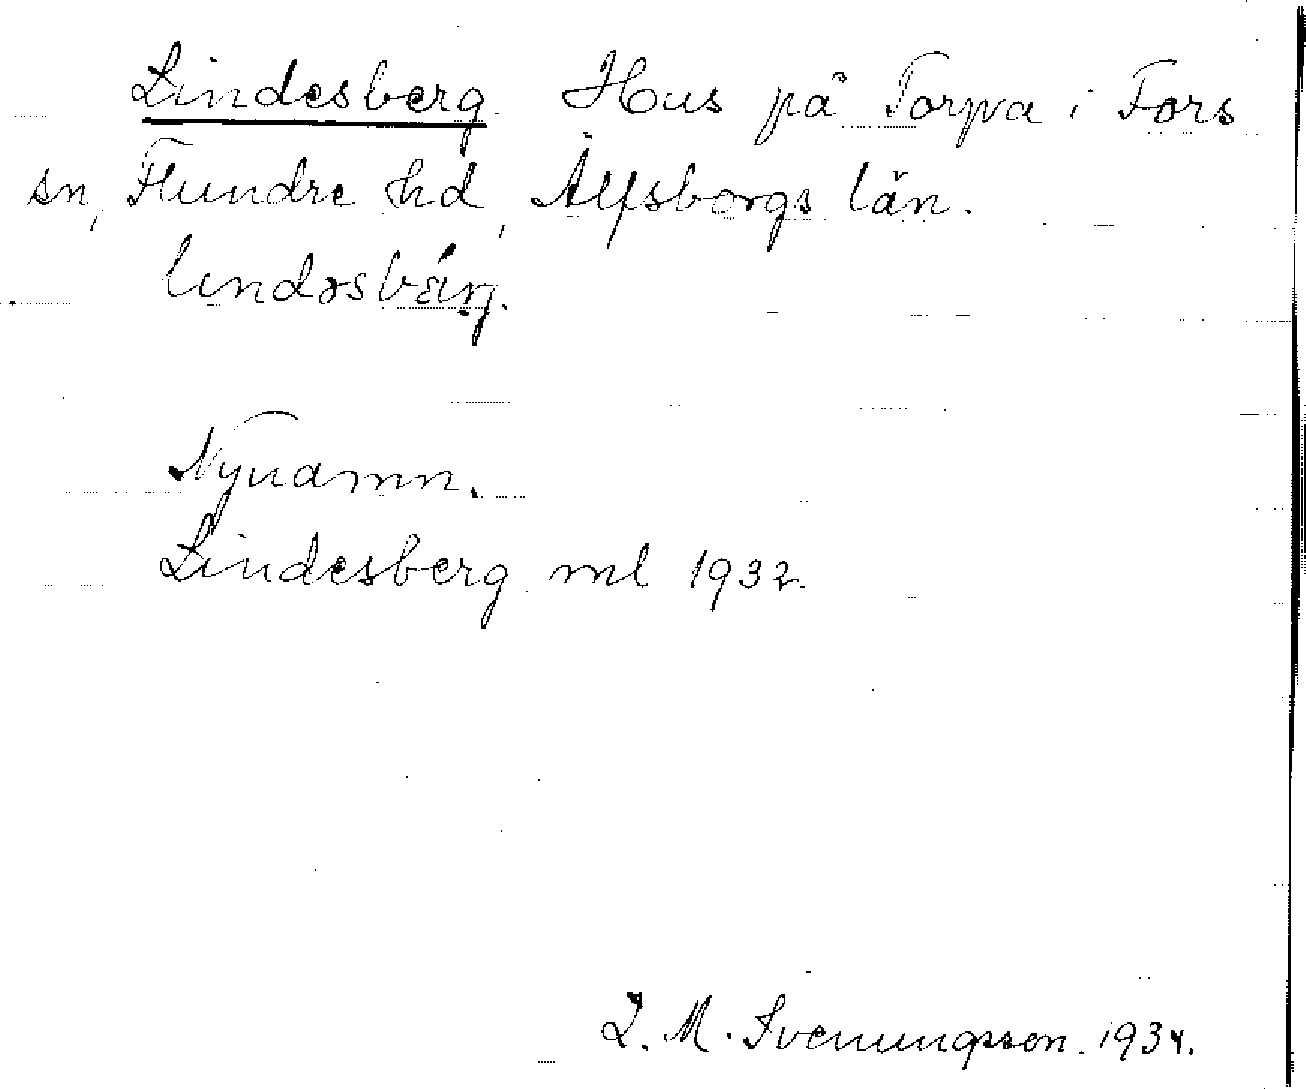 Lindesberg Hus på Torpa i Fors
sn, Flundre hd, Älfsborgs län.
lindəsbärj.
Nynamn.
Lindesberg ml 1932.
I. M. Svenungsson. 1934.